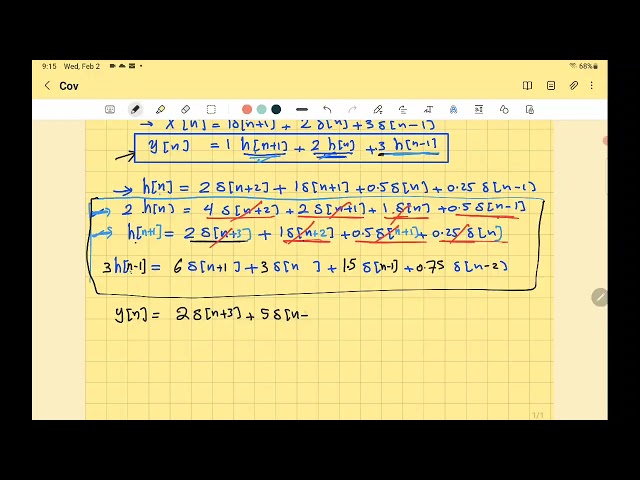 9:15 Wed, Feb 2 68%
Cov
→ X[n] = 1δ[n+1] + 2δ[n] + 3δ[n-1]
y[n] = 1 h[n+1] + 2 h[n] + 3 h[n-1]
→ h[n] = 2δ[n+2] + 1δ[n+1] + 0.5δ[n] + 0.25 δ[n-1]
→ 2 h[n) = 4 δ[n+2] + 2 δ[n+1] + 1 δ[n] + 0.5 δ[n-1]
→ h[n+1] = 2 δ[n+3] + 1δ[n+2] + 0.5 δ[n+1] + 0.25 δ[n]
3h[n-1] = 6δ[n+1] + 3δ[n ] + 1.5 δ[n-1] + 0.75 δ[n-2)
y[n] = 2δ[n+3] + 5δ[n-
1/1